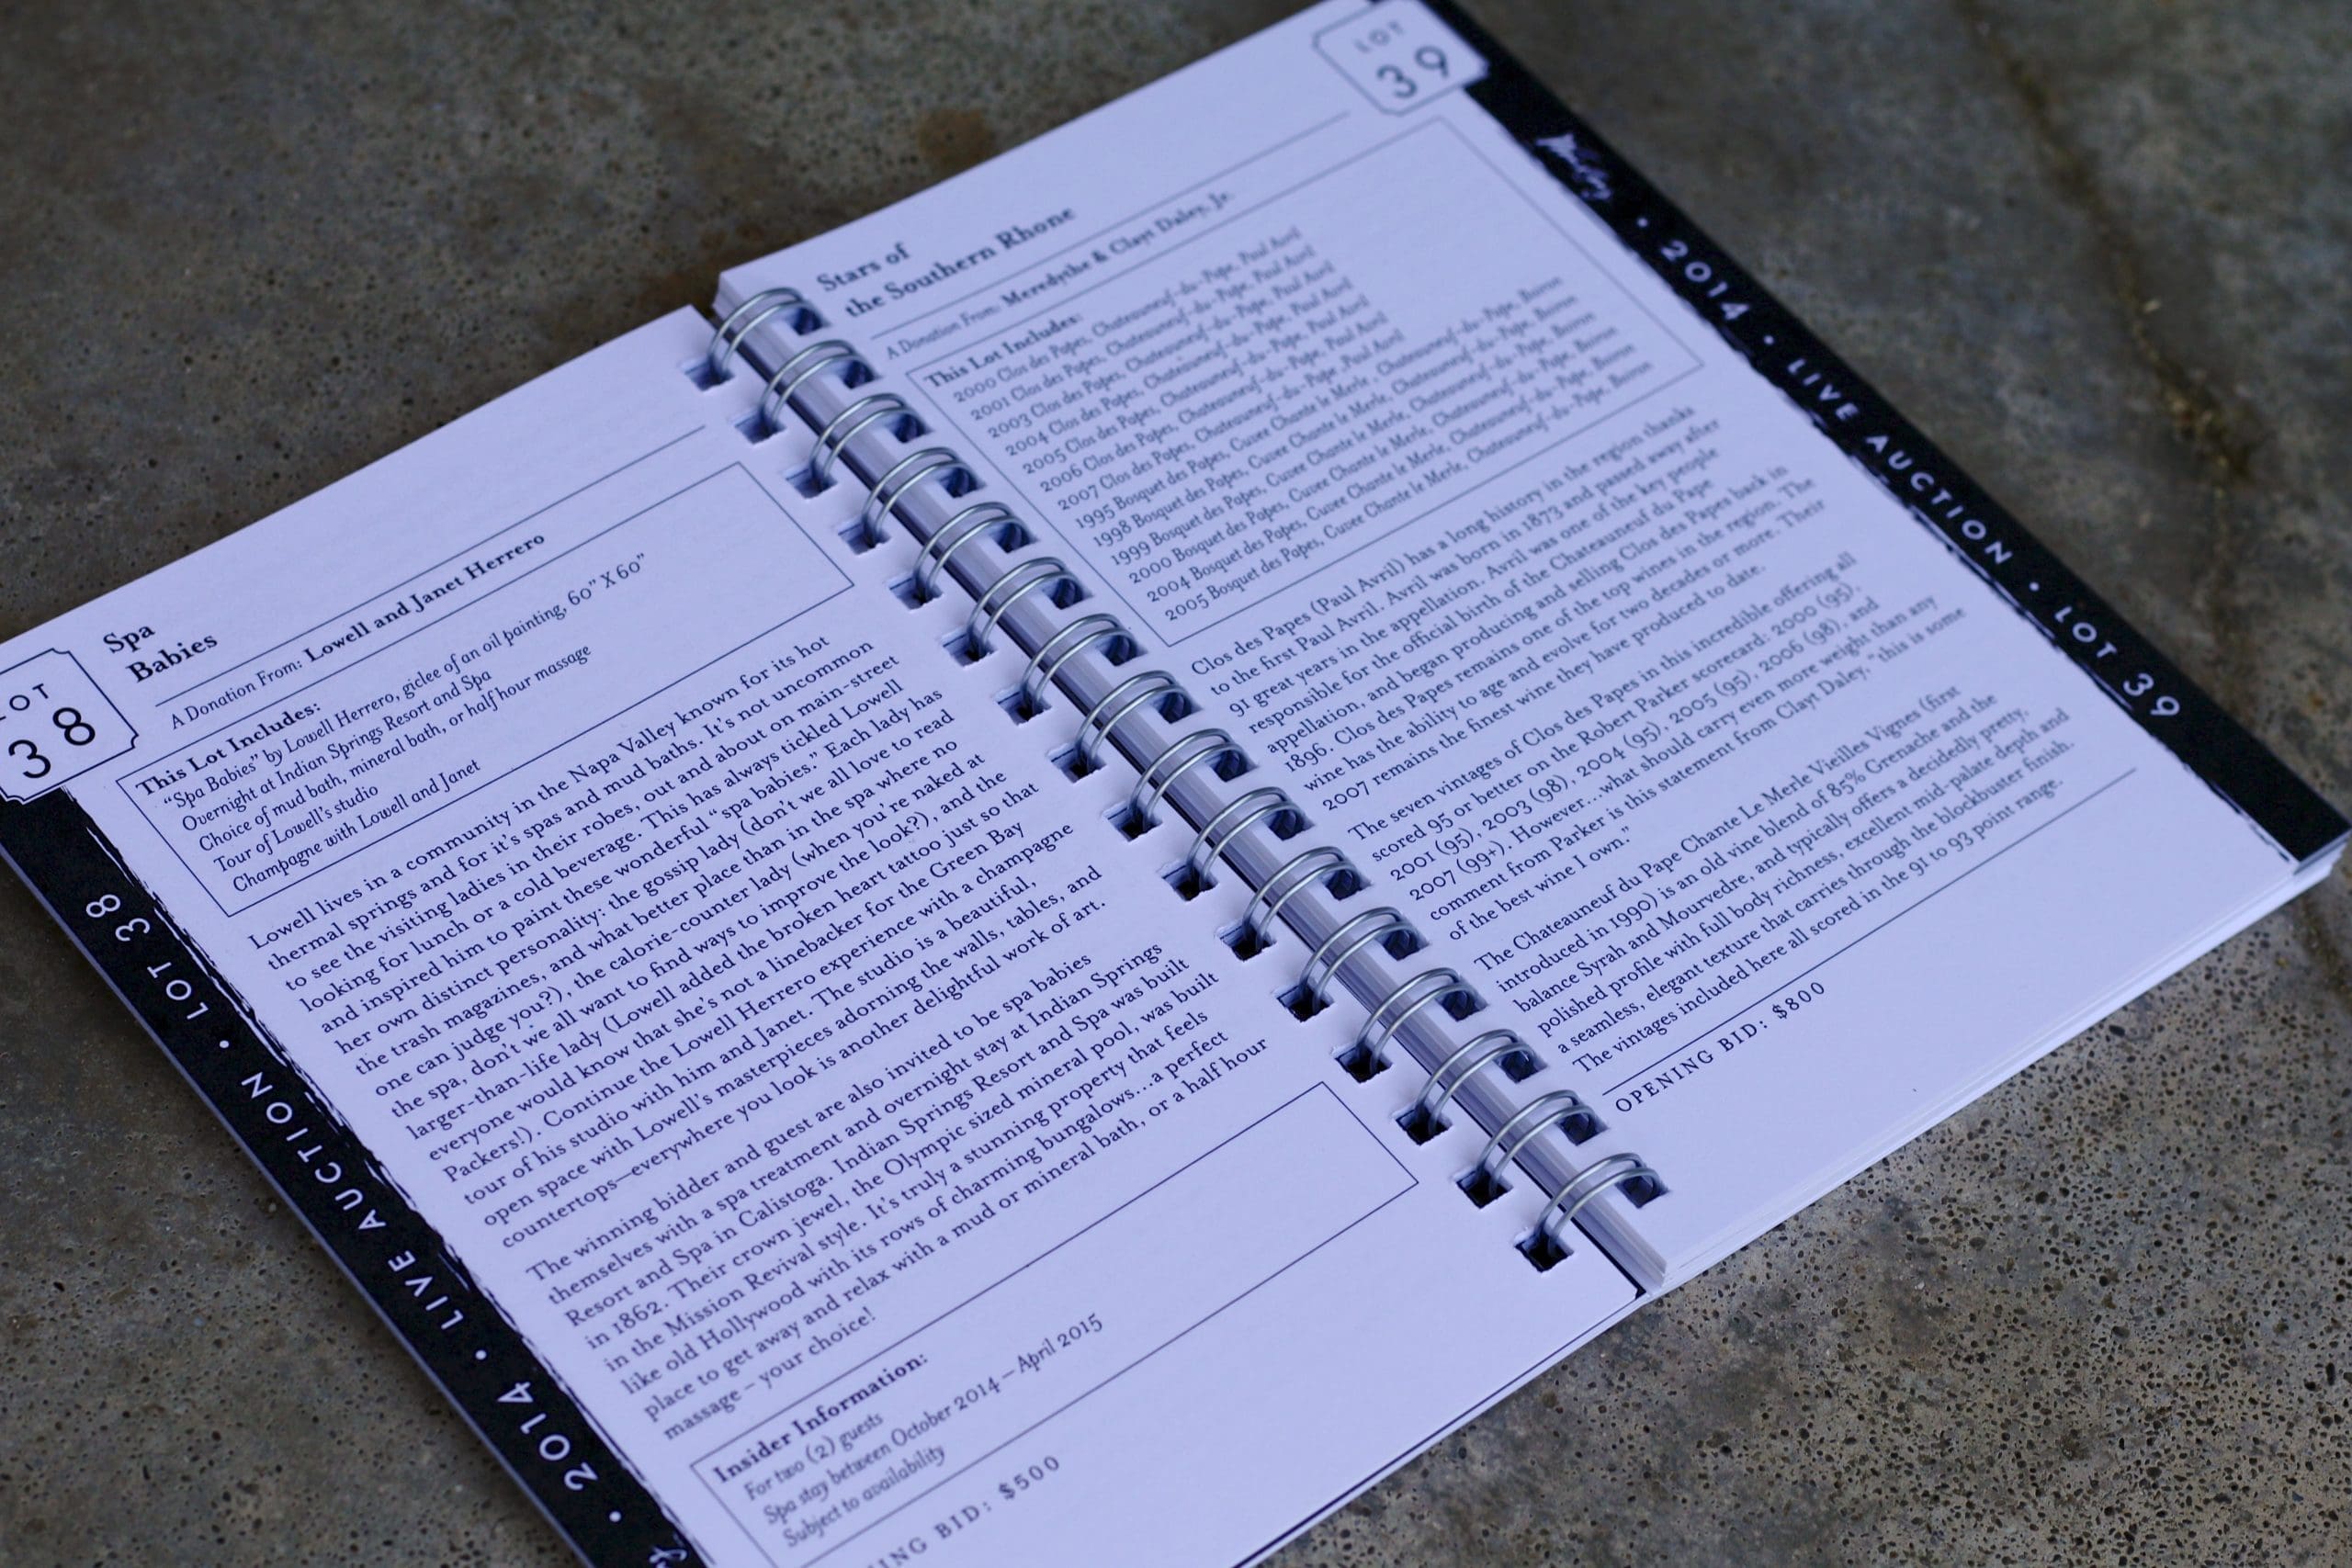 LOT
38
Spa
Babies
A Donation From: Lowell and Janet Herrero
This Lot Includes:
"Spa Babies" by Lowell Herrero, giclee of an oil painting, 60" X 60"
Overnight at Indian Springs Resort and Spa
Choice of mud bath, mineral bath, or half hour massage
Tour of Lowell's studio
Champagne with Lowell and Janet
Lowell lives in a community in the Napa Valley known for its hot
thermal springs and for it's spas and mud baths. It's not uncommon
to see the visiting ladies in their robes, out and about on main-street
looking for lunch or a cold beverage. This has always tickled Lowell
and inspired him to paint these wonderful "spa babies." Each lady has
her own distinct personality: the gossip lady (don't we all love to read
the trash magazines, and what better place than in the spa where no
one can judge you?), the calorie-counter lady (when you're naked at
the spa, don't we all want to find ways to improve the look?), and the
larger-than-life lady (Lowell added the broken heart tattoo just so that
everyone would know that she's not a linebacker for the Green Bay
Packers!). Continue the Lowell Herrero experience with a champagne
tour of his studio with him and Janet. The studio is a beautiful,
open space with Lowell's masterpieces adorning the walls, tables, and
countertops—everywhere you look is another delightful work of art.
The winning bidder and guest are also invited to be spa babies
themselves with a spa treatment and overnight stay at Indian Springs
Resort and Spa in Calistoga. Indian Springs Resort and Spa was built
in 1862. Their crown jewel, the Olympic sized mineral pool, was built
in the Mission Revival style. It's truly a stunning property that feels
like old Hollywood with its rows of charming bungalows...a perfect
place to get away and relax with a mud or mineral bath, or a half hour
massage – your choice!
Insider Information:
For two (2) guests
Spa stay between October 2014 – April 2015
Subject to availability
NING BID: $500
• 2014 • LIVE AUCTION • LOT 38
LOT
39
Stars of
the Southern Rhone
A Donation From: Meredythe & Clayt Daley, Jr.
This Lot Includes:
2000 Clos des Papes, Chateauneuf-du-Pape, Paul Avril
2001 Clos des Papes, Chateauneuf-du-Pape, Paul Avril
2003 Clos des Papes, Chateauneuf-du-Pape, Paul Avril
2004 Clos des Papes, Chateauneuf-du-Pape, Paul Avril
2005 Clos des Papes, Chateauneuf-du-Pape, Paul Avril
2006 Clos des Papes, Chateauneuf-du-Pape, Paul Avril
2007 Clos des Papes, Chateauneuf-du-Pape, Paul Avril
1995 Bosquet des Papes, Cuvee Chante le Merle, Chateauneuf-du-Pape, Boiron
1998 Bosquet des Papes, Cuvee Chante le Merle, Chateauneuf-du-Pape, Boiron
1999 Bosquet des Papes, Cuvee Chante le Merle, Chateauneuf-du-Pape, Boiron
2000 Bosquet des Papes, Cuvee Chante le Merle, Chateauneuf-du-Pape, Boiron
2004 Bosquet des Papes, Cuvee Chante le Merle, Chateauneuf-du-Pape, Boiron
2005 Bosquet des Papes, Cuvee Chante le Merle, Chateauneuf-du-Pape, Boiron
Clos des Papes (Paul Avril) has a long history in the region thanks
to the first Paul Avril. Avril was born in 1873 and passed away after
91 great years in the appellation. Avril was one of the key people
responsible for the official birth of the Chateauneuf du Pape
appellation, and began producing and selling Clos des Papes back in
1896. Clos des Papes remains one of the top wines in the region. The
wine has the ability to age and evolve for two decades or more. Their
2007 remains the finest wine they have produced to date.
The seven vintages of Clos des Papes in this incredible offering all
scored 95 or better on the Robert Parker scorecard: 2000 (95),
2001 (95), 2003 (98), 2004 (95), 2005 (95), 2006 (98), and
2007 (99+). However...what should carry even more weight than any
comment from Parker is this statement from Clayt Daley, "this is some
of the best wine I own."
The Chateauneuf du Pape Chante Le Merle Vieilles Vignes (first
introduced in 1990) is an old vine blend of 85% Grenache and the
balance Syrah and Mourvedre, and typically offers a decidedly pretty,
polished profile with full body richness, excellent mid-palate depth and
a seamless, elegant texture that carries through the blockbuster finish.
The vintages included here all scored in the 91 to 93 point range.
OPENING BID: $800
• 2014 • LIVE AUCTION • LOT 39